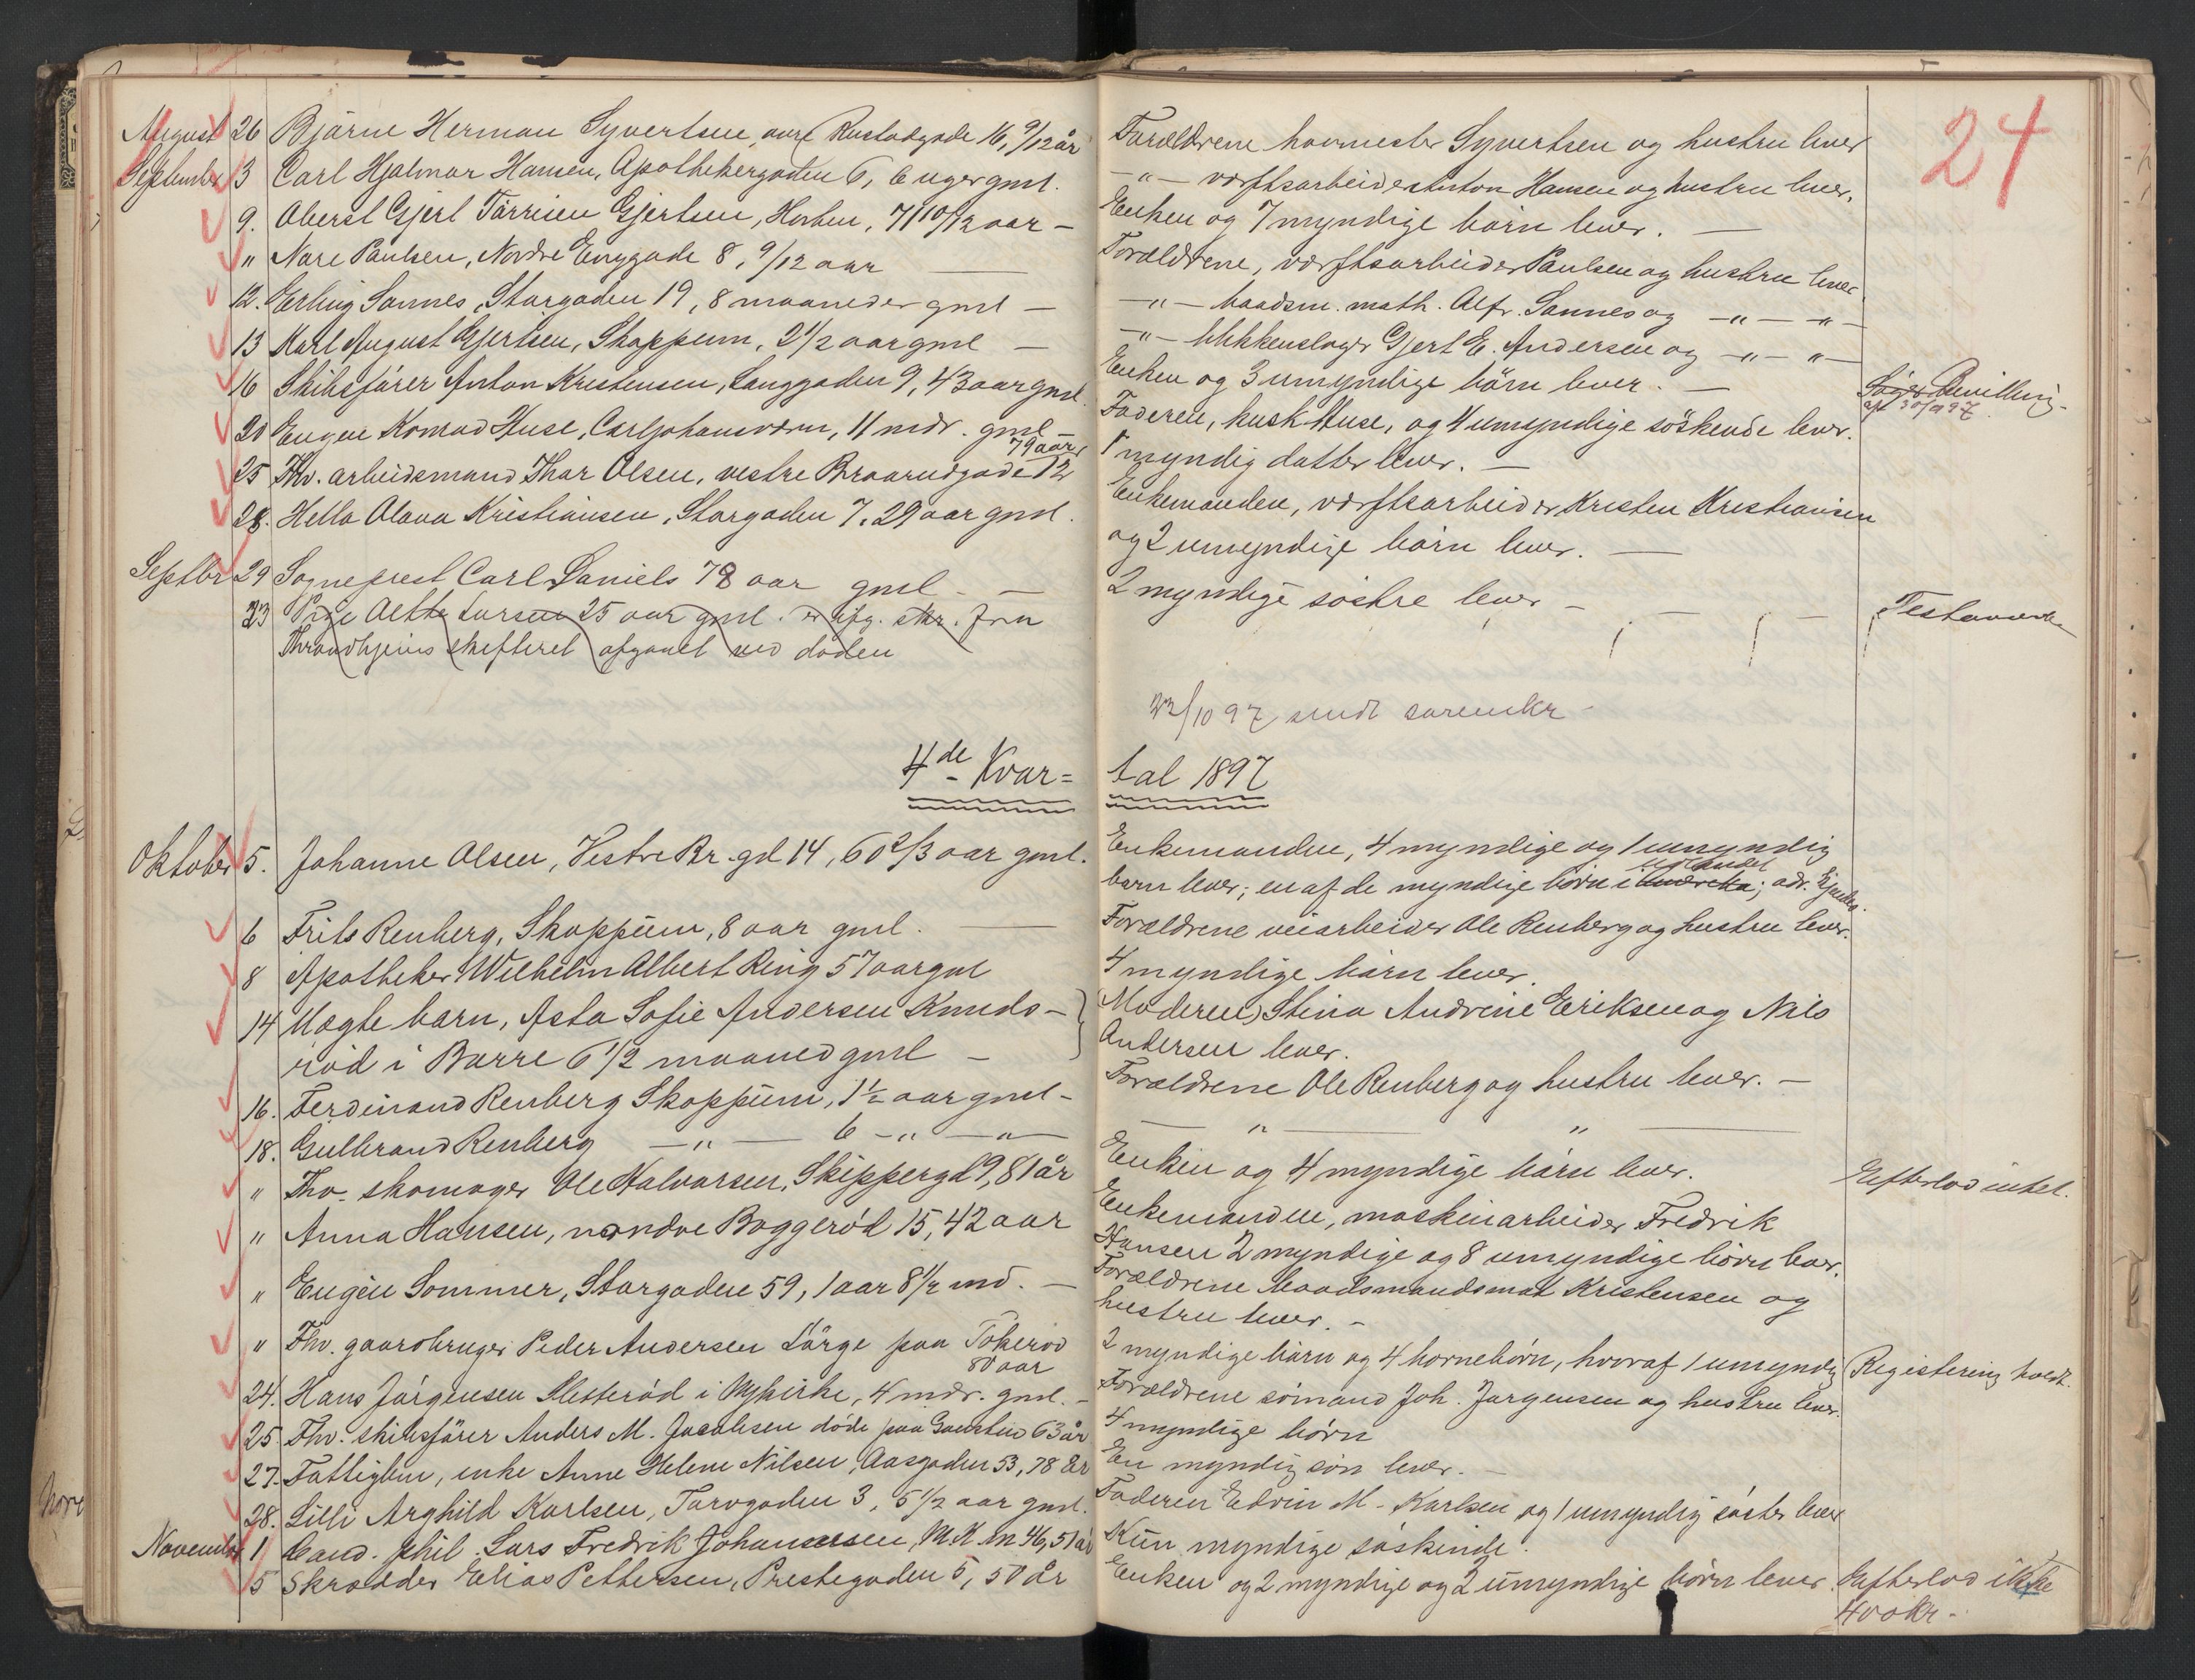 24
August 26 Bjarne Herman Syvertsen, Rustadgade 16, 9/12 år
September 3 Carl Hjalmar Hansen, Apothekergaden 6, 6 uger gml.
9. Oberst Gjert Tørrisen Gjertsen, Horten, 71 10/12 aar –
" Nare Paulsen, Nordre Enggade 8, 9/12 aar
12. Erling Sannes, Storgaden 19, 8 maaneder gml –
13 Karl August Gjertsen, Skoppum, 2 1/2 aar gml –
16 Skibsfører Anton Kristensen, Langgaden 9, 43 aar gml.
20 Eugen Konrad Huse, Carljohansværn, 11 mdr. gml –
79 aar
25 Fhv. arbeidsmand Thor Olsen, vestre Braarudgade 12
28. Hella Olava Kristiansen, Storgaden 7, 29 aar gml.
Septbr 29 Sogneprest Carl Daniels 78 aar gml –
23 Pige Aette Larsen 25 aar gml. er ifg. skr. fra
Throndhjems skifteret afgaaet ved døden
4de Kvar=
Oktober 5. Johanne Olsen, Vestre Br. gd 14, 60 2/3 aar gml.
6 Frits Renberg, Skoppum, 8 aar gml.
8 Apotheker Wilhelm Albert Ring 57 aar gml
14 Uægte barn, Asta Sofie Andersen Knuds-
rød i Borre 6 1/2 maaned gml –
16. Ferdinand Renberg Skoppum, 1 1/2 aar gml –
18. Gulbrand Renberg – " – 6 – " – " –
" Fhv. skomager Ole Halvorsen, Skippergd 9, 81 år
" Anna Hansen, nordre Baggerød 15, 42 aar
" Eugen Sommer, Storgaden 59, 1 aar 8 1/2 md. –
" Fhv. gaardbruger Peder Andersen Lørge paa Tokerød
80 aar
24. Hans Jørgensen Slesterød i Nykirke, 4 mdr. gml. –
25. Fhv. skibsfører Anders M. Jacobsen døde paa Gaustad 63 år
27. Fattiglem, enke Anne Helene Nilsen, Aasgaden 53, 78 år
28. Lilli Arghild Karlsen, Torvgaden 3, 5 1/2 aar gml.
November 1 Cand. phil. Lars Fredrik Johannessen, M.K. 46, 51 år
5 Skrædder Elias Pettersen, Prestegaden 5, 50 år
Forældrene hovmester Syvertsen og hustru lever
– " – værftsarbeider Anton Hansen og hustru lever.
Enken og 7 myndige børn lever. –
Forældrene, værftsarbeider Paulsen og hustru lever
– " – baadsm. math. Alf. Sannes og – " – " –
– " – blikkenslager Gjert E. Andersen og – " – " –
Enken og 3 umyndige børn lever. –
Søger Bevilling
Faderen, husk. Huse, og 4 umyndige søskende lever.
1 myndig datter lever. –
Enkemanden, værftsarbeider Kristen Kristiansen
og 2 umyndige børn lever. –
2 myndige søstre lever –
Testamente
22/10 97 sendt sorenskr
tal 1897
Enkemanden, 4 myndige og 1 umyndig
udlandet
barn lever; en af de myndige børn i Amerika; adr.
Forældrene veiarbeider Ole Renberg og hustru lever.
4 myndige børn lever.
(Moderen) Stina Andrine Eriksen og Nils
Andersen lever.
Forældrene Ole Renberg og hustru lever. –
– " – " –
Enken og 4 myndige børn lever.
Efterlod intet.
Enkemanden, maskinarbeider Fredrik
Hansen 2 myndige og 8 umyndige børn lever.
Forældrene baadsmandsmat Kristensen og
hustru lever. –
2 myndige børn og 4 børnebørn, hvoraf 1 umyndig
Registrering holdt.
Forældrene sømand Joh. Jørgensen og hustru lever.
4 myndige børn
En myndig søn lever. –
Faderen Edvin M. Karlsen og 1 umyndig søster lever
Kun myndige søskende.
Enken og 2 myndige og 2 umyndige børn lever.
Efterlod ikke
400 kr.